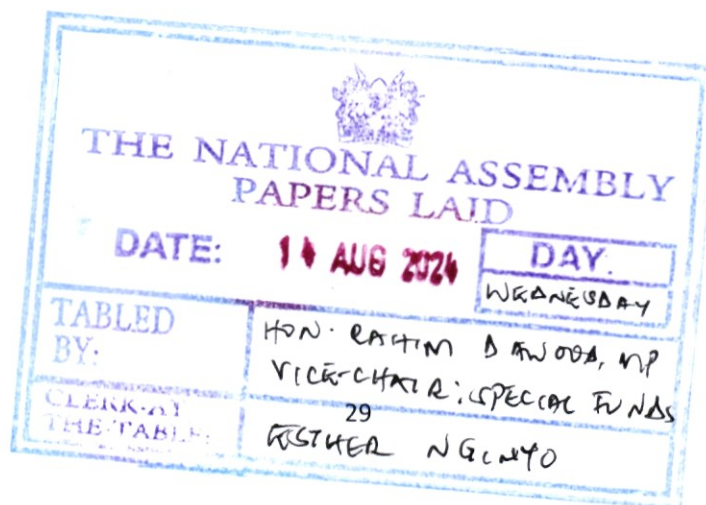 THE NATIONAL ASSEMBLY
PAPERS LAID
DATE: 14 AUG 2024 DAY.
WEDNESDAY
TABLED BY: HON. RAHIM DAWOOD, MP
VICE-CHAIR: SPECIAL FUNDS
CLERK-AT THE-TABLE: 29
ESTHER NGINYO